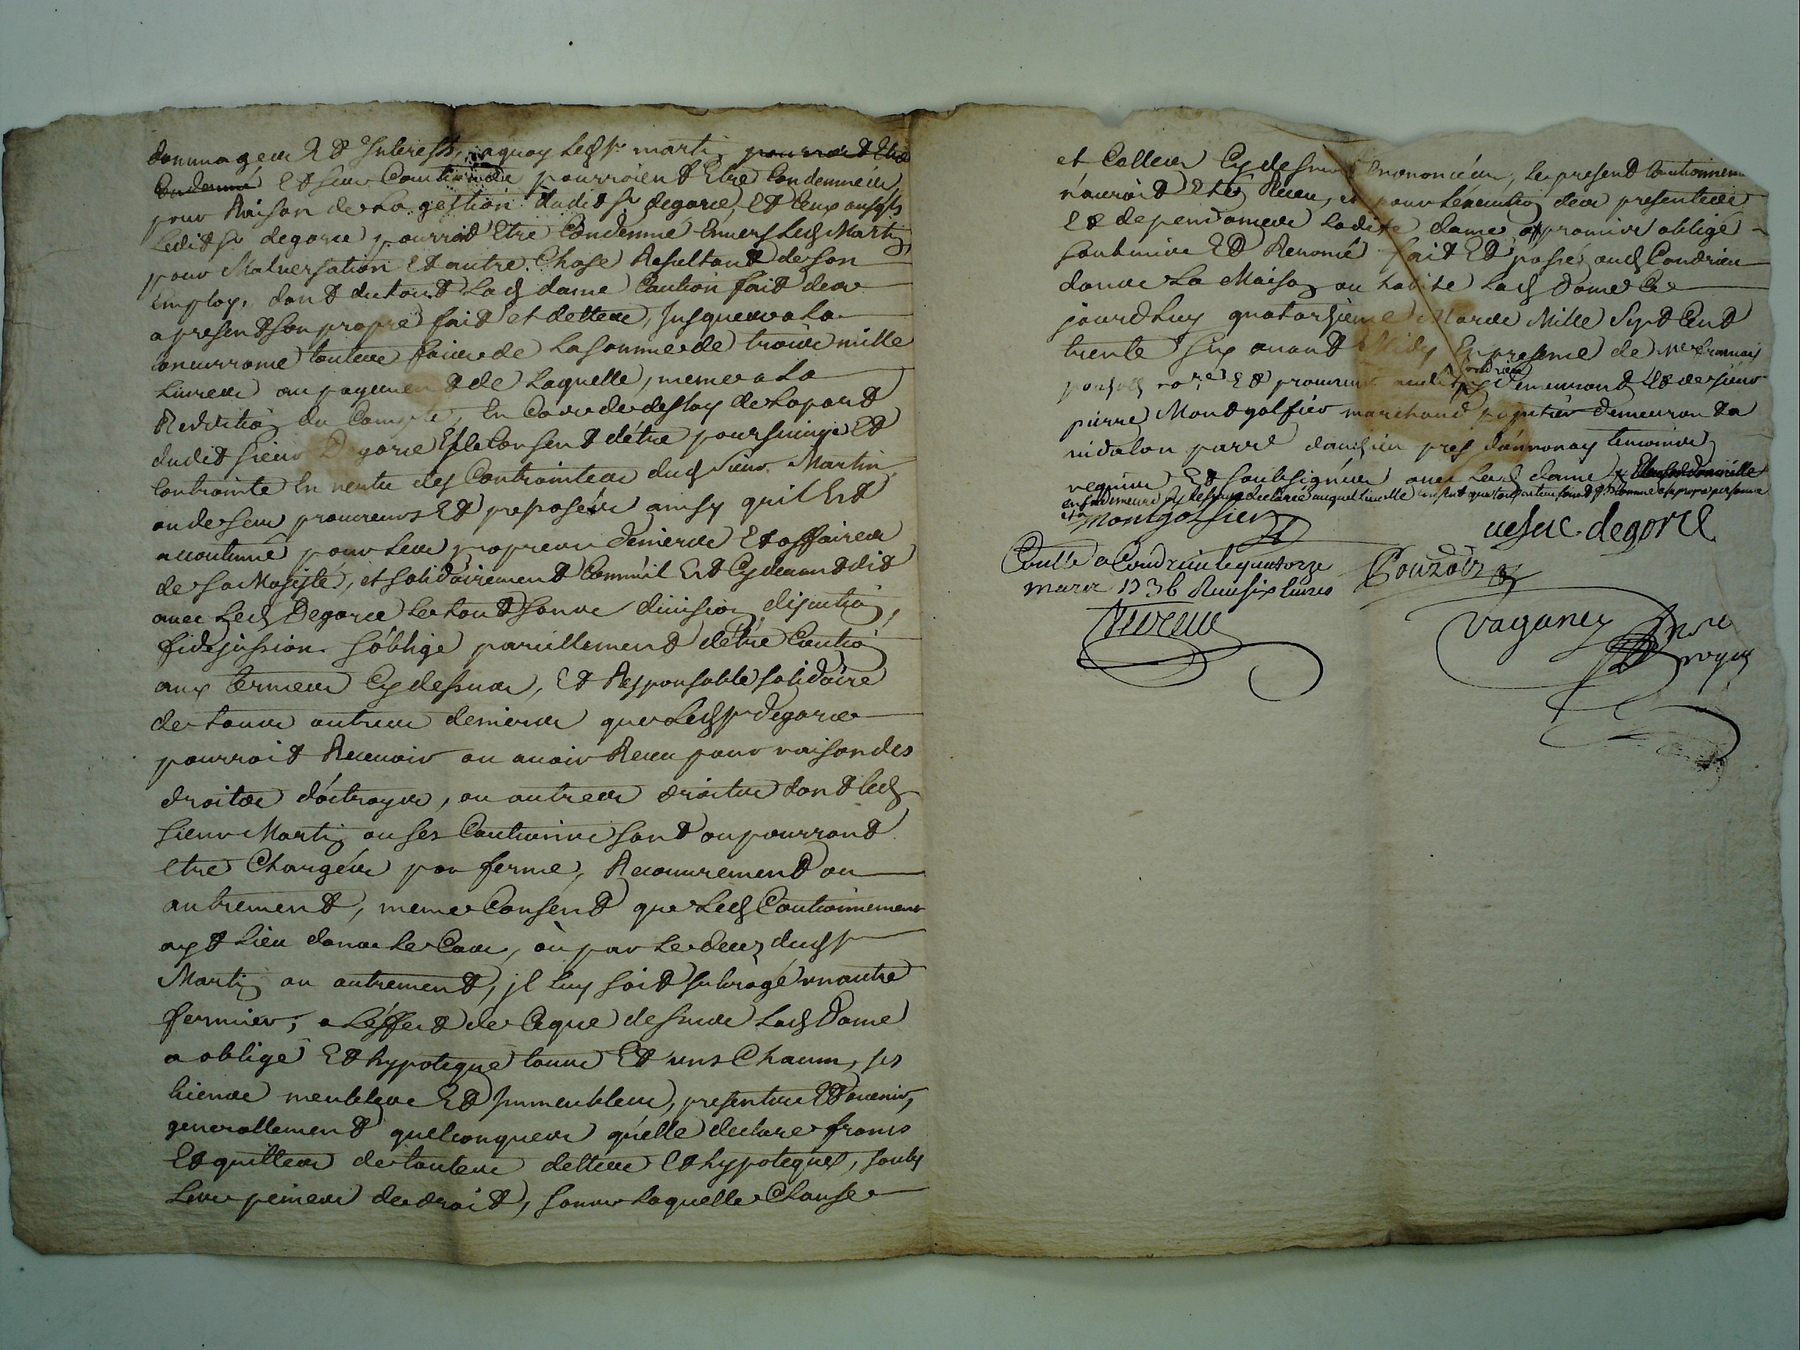 dommages Et Interests, aquoy led Sr martin pourroit Etre
Condemné Et ses Cautions pourroient Etre Condemnées
pour Raison de La gestion dudit Sr degorce, Et Ceux ausquels
Ledit Sr degorce pourroit Etre Condemné Envers Led Martin
pour Malversation Et autre Chose Resultant de Son
Employ, dont du tout Lad dame Caution fait des
a present Son propre fait et dettes, Jusques a la
Concurrance toutes fois de La Somme de trois mille
Livres au payement de Laquelle, mesme a La
Reddition du Compte, En Cas de deffaut de La part
dudit Sieur Degorce Elle Consent d'être poursuivie Et
Contrainte En vertu des Contraintes dud Sieur Martin
ou de Ses procureurs Et preposés ainsy quil Est
accoutumé pour Les propres deniers Et affaires
de Sa Majesté, et Solidairement Comm'il Est Cydevant dit
avec Led Degorce Le tout Sans division, discution,
fidejussion. S'oblige pareillement d'être Caution
aux termes Cy dessus, Et Responsable Solidaire
de tous autres deniers que Led Sr degorce
pourroit Recevoir ou avoir Receu pour raison des
droits d'octroys, ou autres droits dont led
Sieur Martin ou Ses Cautions Sont ou pourront
etre Chargés par ferme, Recouvrement ou
autrement, mesme Consent que Led Cautionnement
ayt Lieu dans Le Cas, où par Le deces dud Sr
Martin ou autrement, jl Luy Soit Subrogé un autre
fermier, a L'éffect de Ceque dessus Lad Dame
a obligé Et hypotequé tous Et uns Chacun, ses
biens meubles Et Immeubles, presents Et avenir,
generallement quelconques qu'elle declare francs
Et quittes de toutes dettes Et hypoteques, Soubs
Les peines de droit, Sans Laquelle Clause
et Celles Cy dessus Enoncées, Le present Cautionnement
n'auroit Eté Receu, et pour L'éxecution des presentes
Et dependances Ladite dame a promis obligé
Soubmis Et Renoncé fait Et passé aud Condrieu
dans La Maison ou habite Lad Dame Ce
jourdhuy quatorzieme Mars Mille Sept Cent
trente Six avant Midy En presence de Me francois
Et procureur Demeurant Et de sieur
pierre Montgolfier marchand papetier demeurant a
vidalon parroisse pres d'annonay temoins
requis Et Soubsignés avec Lad dame
Montgolfier
vesue degorce
Conllé a Condrieu le quatorze
mars 1736 Receu six livres
Vaganey